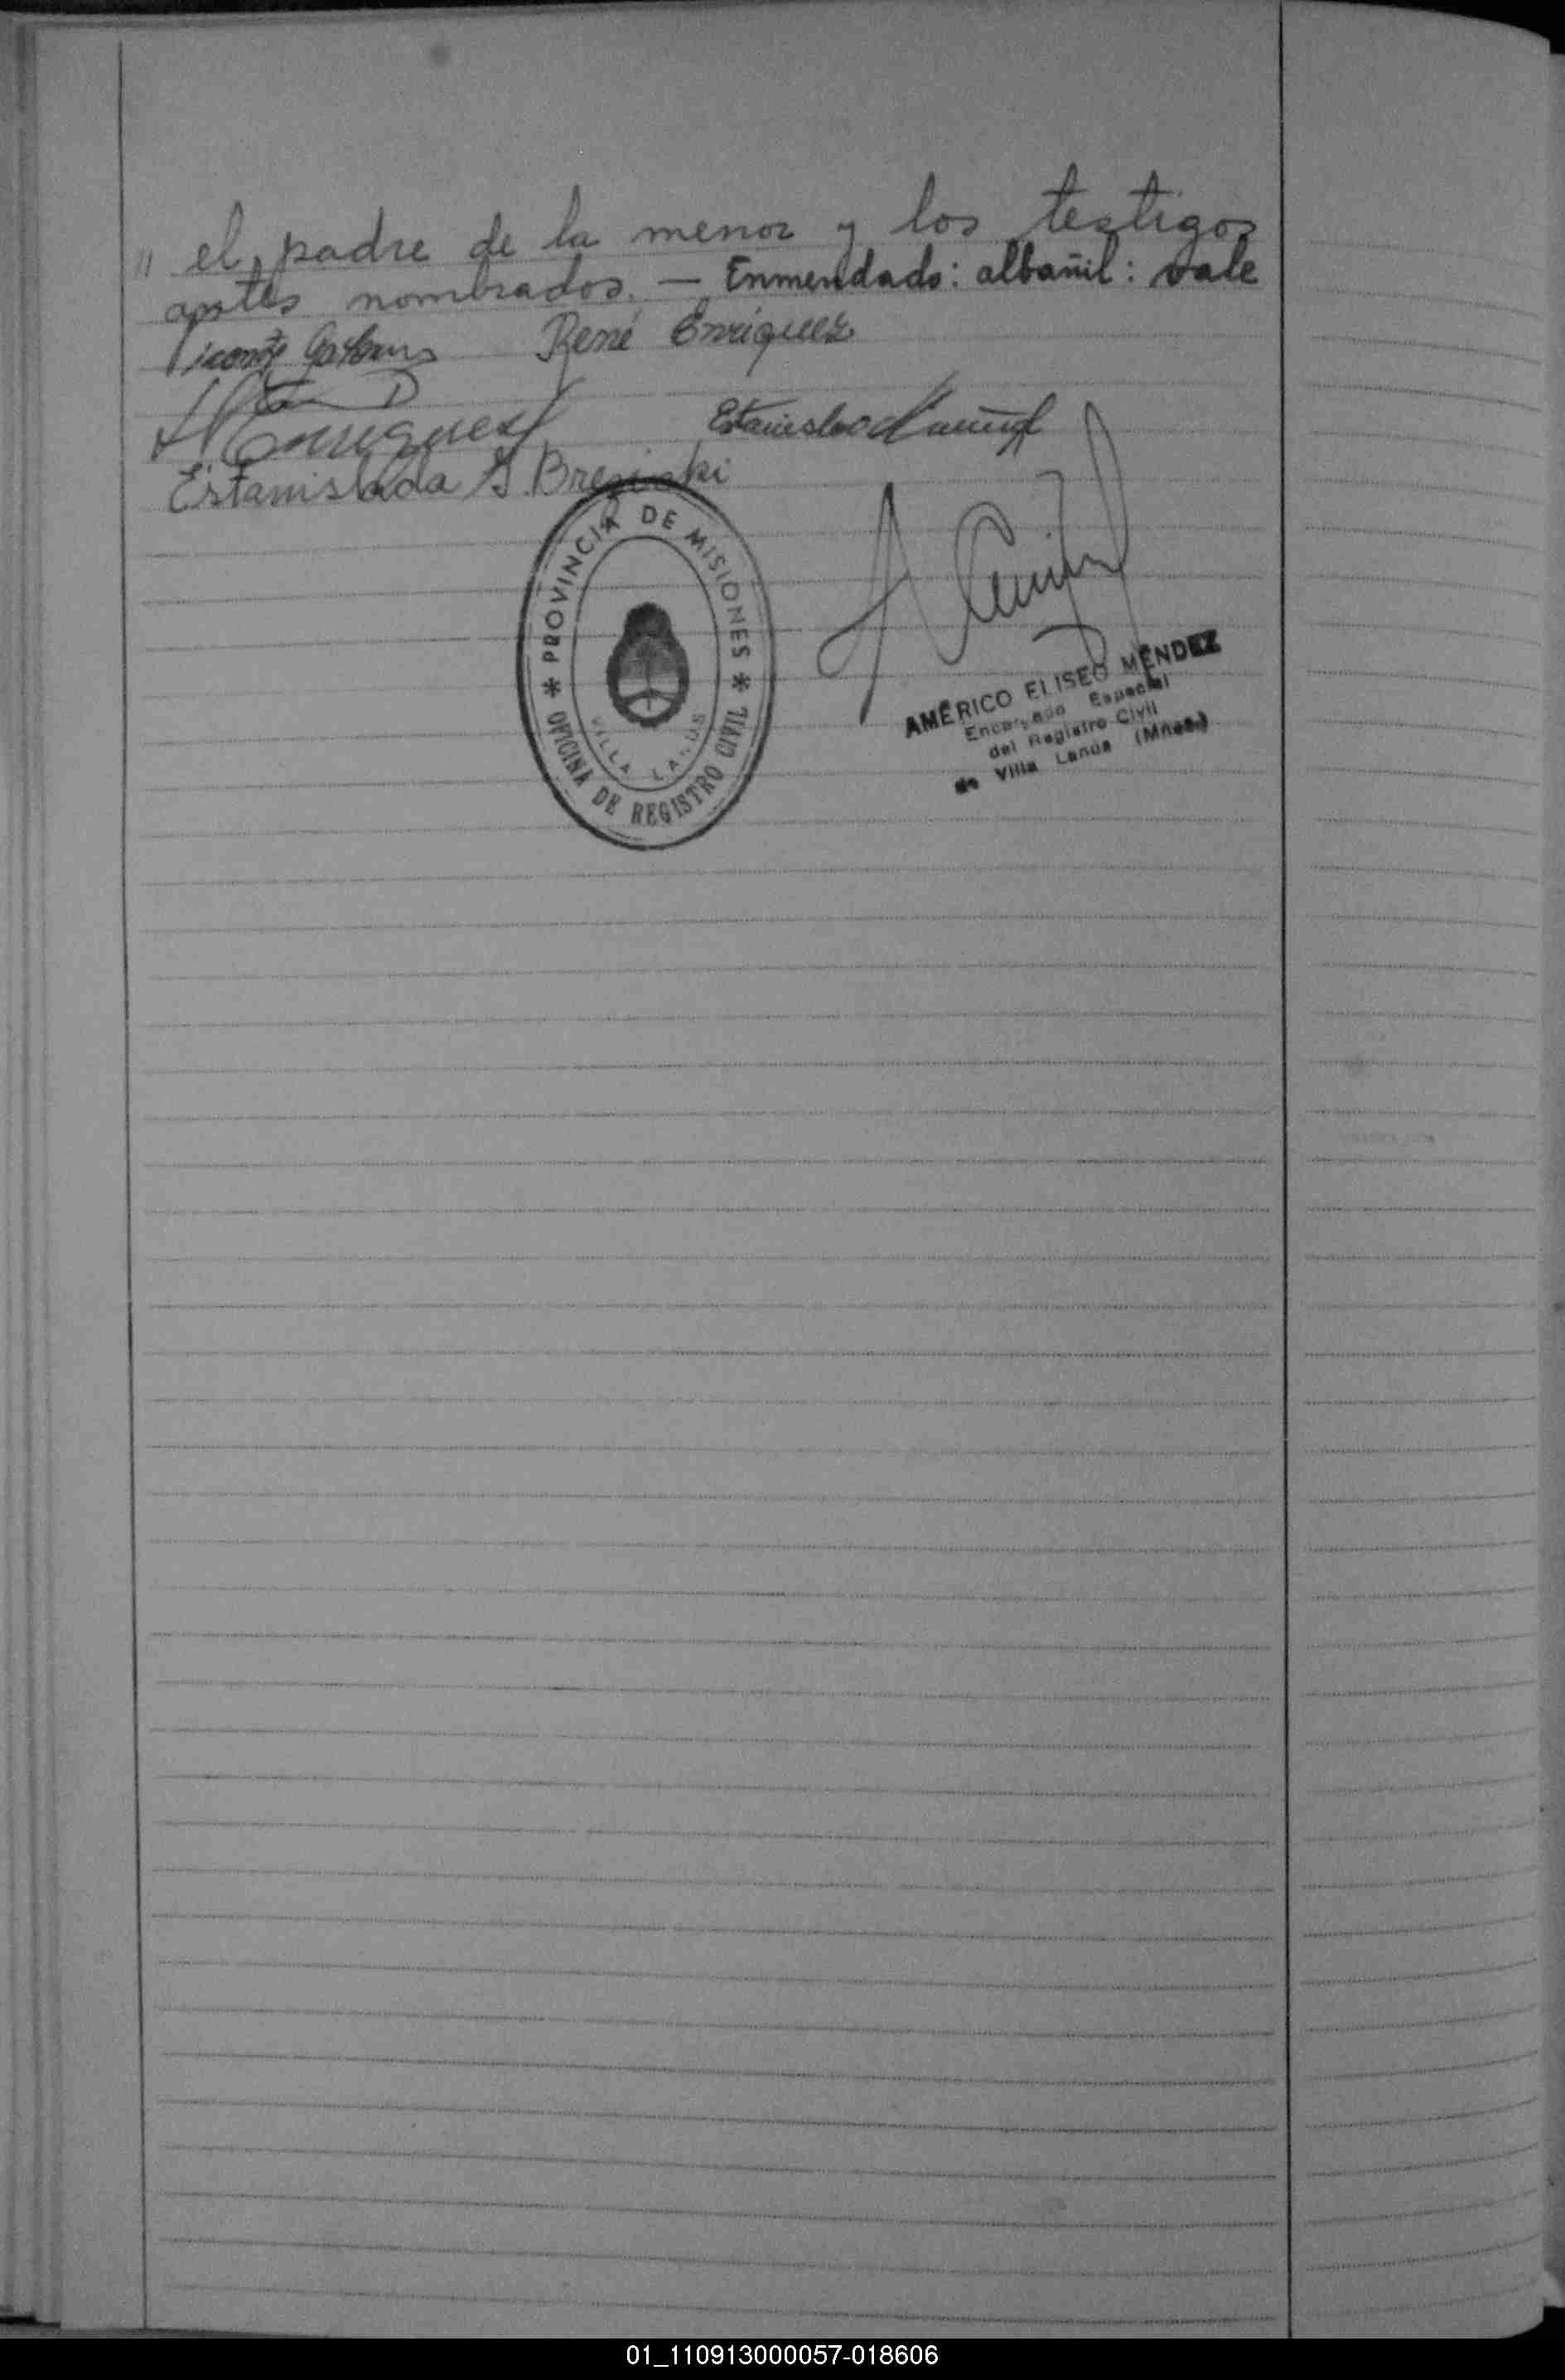 " el padre de la menor y los testigos
antes nombrados. — Enmendado: albañil: vale
René Enriquez
Enriquez
Estanislao
Estanislada G. Bresiski
PROVINCIA DE MISIONES
VILLA LANUS
* OFICINA DE REGISTRO CIVIL *
AMÉRICO ELISEO MÉNDEZ
Encargado Especial
del Registro Civil
de Villa Lanús (Mnes.)
01_110913000057-018606